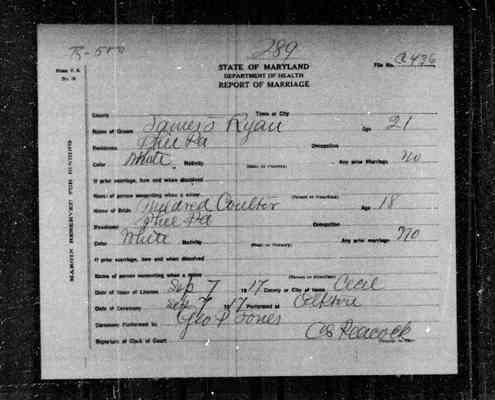 289
B-500
Form V. S.
No. 16
STATE OF MARYLAND
DEPARTMENT OF HEALTH
REPORT OF MARRIAGE
File No. C 436
MARGIN RESERVED FOR BINDING
County Town or City
Name of Groom James Ryan Age 21
Residence Phil Pa Occupation
Color White Nativity (State or Country) Any prior Marriage no
If prior marriage, how and when dissolved
Name of person consenting when a minor (Parent or Guardian)
Name of Bride Mildred Coulter Age 18
Residence Phil Pa Occupation
Color White Nativity (State or Country) Any prior marriage no
If prior marriage, how and when dissolved
Name of person consenting when a minor (Parent or Guardian)
Date of Issue of License Sep 7 1917 County or City of Issue Cecil
Date of Ceremony Sep 7 17 Performed at Elkton
Ceremony Performed by Geo P Jones
Signature of Clerk of Court Peacock